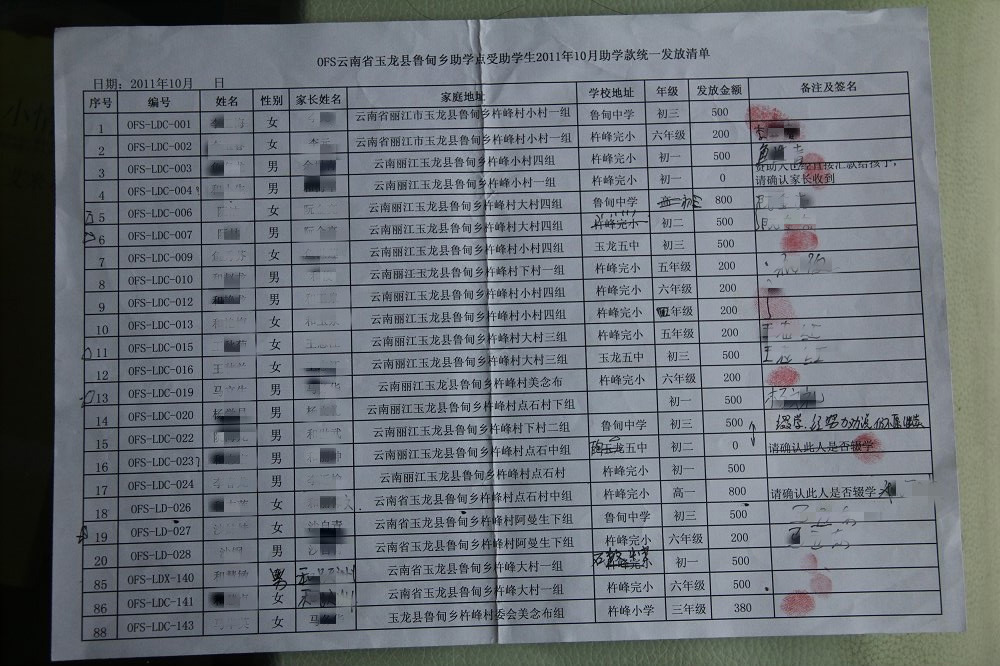 OFS云南省玉龙县鲁甸乡助学点受助学生2011年10月助学款统一发放清单
日期：2011年10月 日
序号 编号 姓名 性别 家长姓名 家庭地址 学校地址 年级 发放金额 备注及签名
1 OFS-LDC-001 女 云南省丽江市玉龙县鲁甸乡杵峰村小村一组 鲁甸中学 初三 500
2 OFS-LDC-002 女 云南省丽江市玉龙县鲁甸乡杵峰村小村一组 杵峰完小 六年级 200
3 OFS-LDC-003 男 云南丽江玉龙县鲁甸乡杵峰村小村四组 杵峰完小 初一 500
4 OFS-LDC-004 男 云南丽江玉龙县鲁甸乡杵峰小村一组 杵峰完小 初一 0 资助人已经直接汇款给孩子，
请确认家长收到
5 OFS-LDC-006 女 云南丽江玉龙县鲁甸乡杵峰村大村四组 鲁甸中学 800
6 OFS-LDC-007 男 云南丽江玉龙县鲁甸乡杵峰村大村四组 杵峰完小 初二 500
7 OFS-LDC-009 女 云南丽江玉龙县鲁甸乡杵峰村小村四组 玉龙五中 初三 500
8 OFS-LDC-010 男 云南丽江玉龙县鲁甸乡杵峰村下村一组 杵峰完小 五年级 200
9 OFS-LDC-012 男 云南丽江玉龙县鲁甸乡杵峰村小村四组 杵峰完小 六年级 200
10 OFS-LDC-013 女 云南丽江玉龙县鲁甸乡杵峰村小村四组 杵峰完小 四年级 200
11 OFS-LDC-015 云南丽江玉龙县鲁甸乡杵峰村大村三组 杵峰完小 五年级 200
12 OFS-LDC-016 女 云南丽江玉龙县鲁甸乡杵峰村大村三组 玉龙五中 初三 500
13 OFS-LDC-019 男 云南丽江玉龙县鲁甸乡杵峰村美念布 杵峰完小 六年级 200
14 OFS-LDC-020 男 云南丽江玉龙县鲁甸乡杵峰村点石村下组 初一 500
15 OFS-LDC-022 男 云南丽江玉龙县鲁甸乡杵峰村下村二组 鲁甸中学 初三 500
16 OFS-LDC-023 男 云南丽江玉龙县鲁甸乡杵峰村点石中组 玉龙五中 初二 0 请确认此人是否辍学
17 OFS-LDC-024 云南丽江玉龙县鲁甸乡杵峰村点石村 杵峰完小 初一 500
18 OFS-LD-026 女 云南省玉龙县鲁甸乡杵峰村点石村中组 杵峰完小 高一 800 请确认此人是否辍学
19 OFS-LD-027 女 云南省玉龙县鲁甸乡杵峰村阿曼生下组 鲁甸中学 初三 500
20 OFS-LD-028 男 云南省玉龙县鲁甸乡杵峰村阿曼生下组 杵峰完小 六年级 200
85 OFS-LDX-140 男 云南省玉龙县鲁甸乡杵峰大村一组 杵峰完小 初一 500
86 OFS-LDC-141 女 云南省玉龙县鲁甸乡杵峰大村一组 杵峰完小 六年级 500
88 OFS-LDC-143 女 玉龙县鲁甸乡杵峰村委会美念布组 杵峰小学 三年级 380